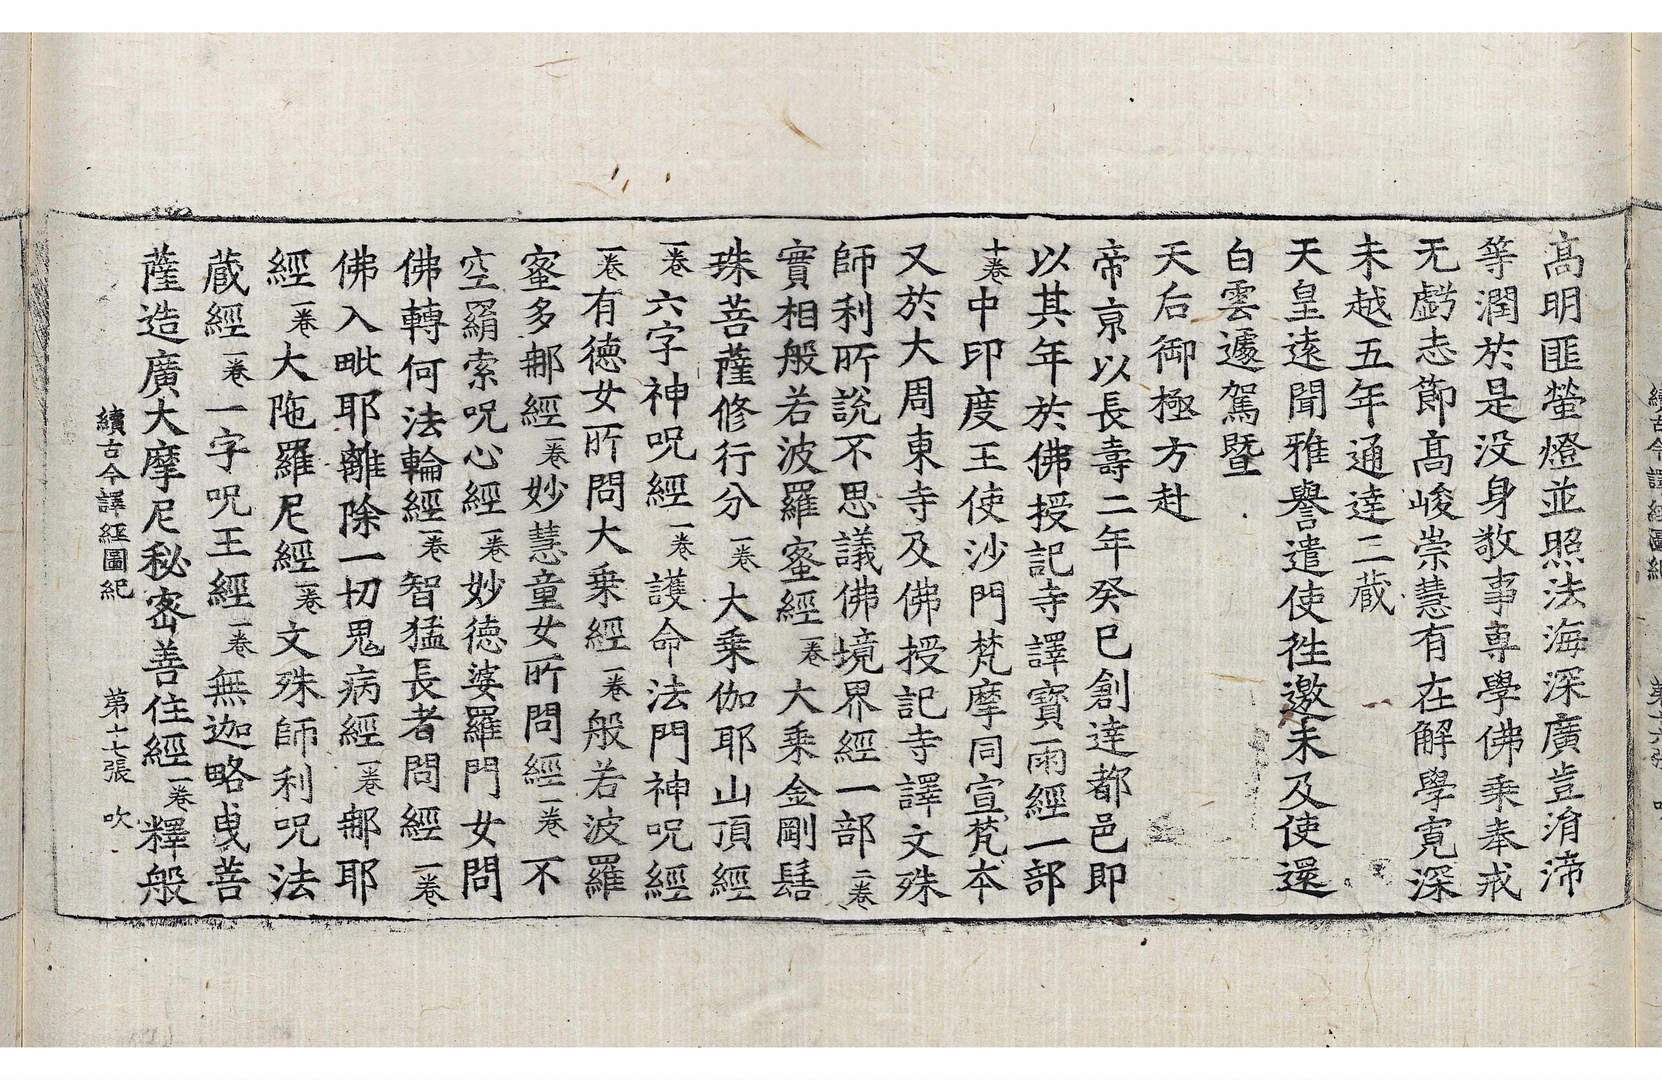 高明匪螢燈並照法海深廣豈涓渧
等潤於是没身敬事專學佛乘奉戒
无虧志節高峻崇慧有在解學寛深
未越五年通達三蔵
天皇遠聞雅譽遣使徃邀未及使還
白雲遽駕暨
天后御極方赴
帝京以長壽二年癸巳創達都邑即
以其年於佛授記寺譯寶雨經一部
十卷中印度王使沙門梵摩同宣梵本
又於大周東寺及佛授記寺譯文殊
師利所說不思議佛境界經一部二卷
實相般若波羅蜜經一卷大乘金剛髻
珠菩薩修行分一卷大乘伽耶山頂經
一卷六字神呪經一卷護命法門神呪經
一卷有德女所問大乘經一卷般若波羅
蜜多那經一卷妙慧童女所問經一卷不
空羂索呪心經一卷妙德婆羅門女問
佛轉何法輪經一卷智猛長者問經一卷
佛入毗耶離除一切鬼病經一卷那耶
經一卷大陁羅尼經一卷文殊師利呪法
蔵經一卷一字呪王經一卷無迦略曳菩
薩造廣大摩尼秘密善住經一卷釋般
續古今譯經圖紀 第十七張 吹